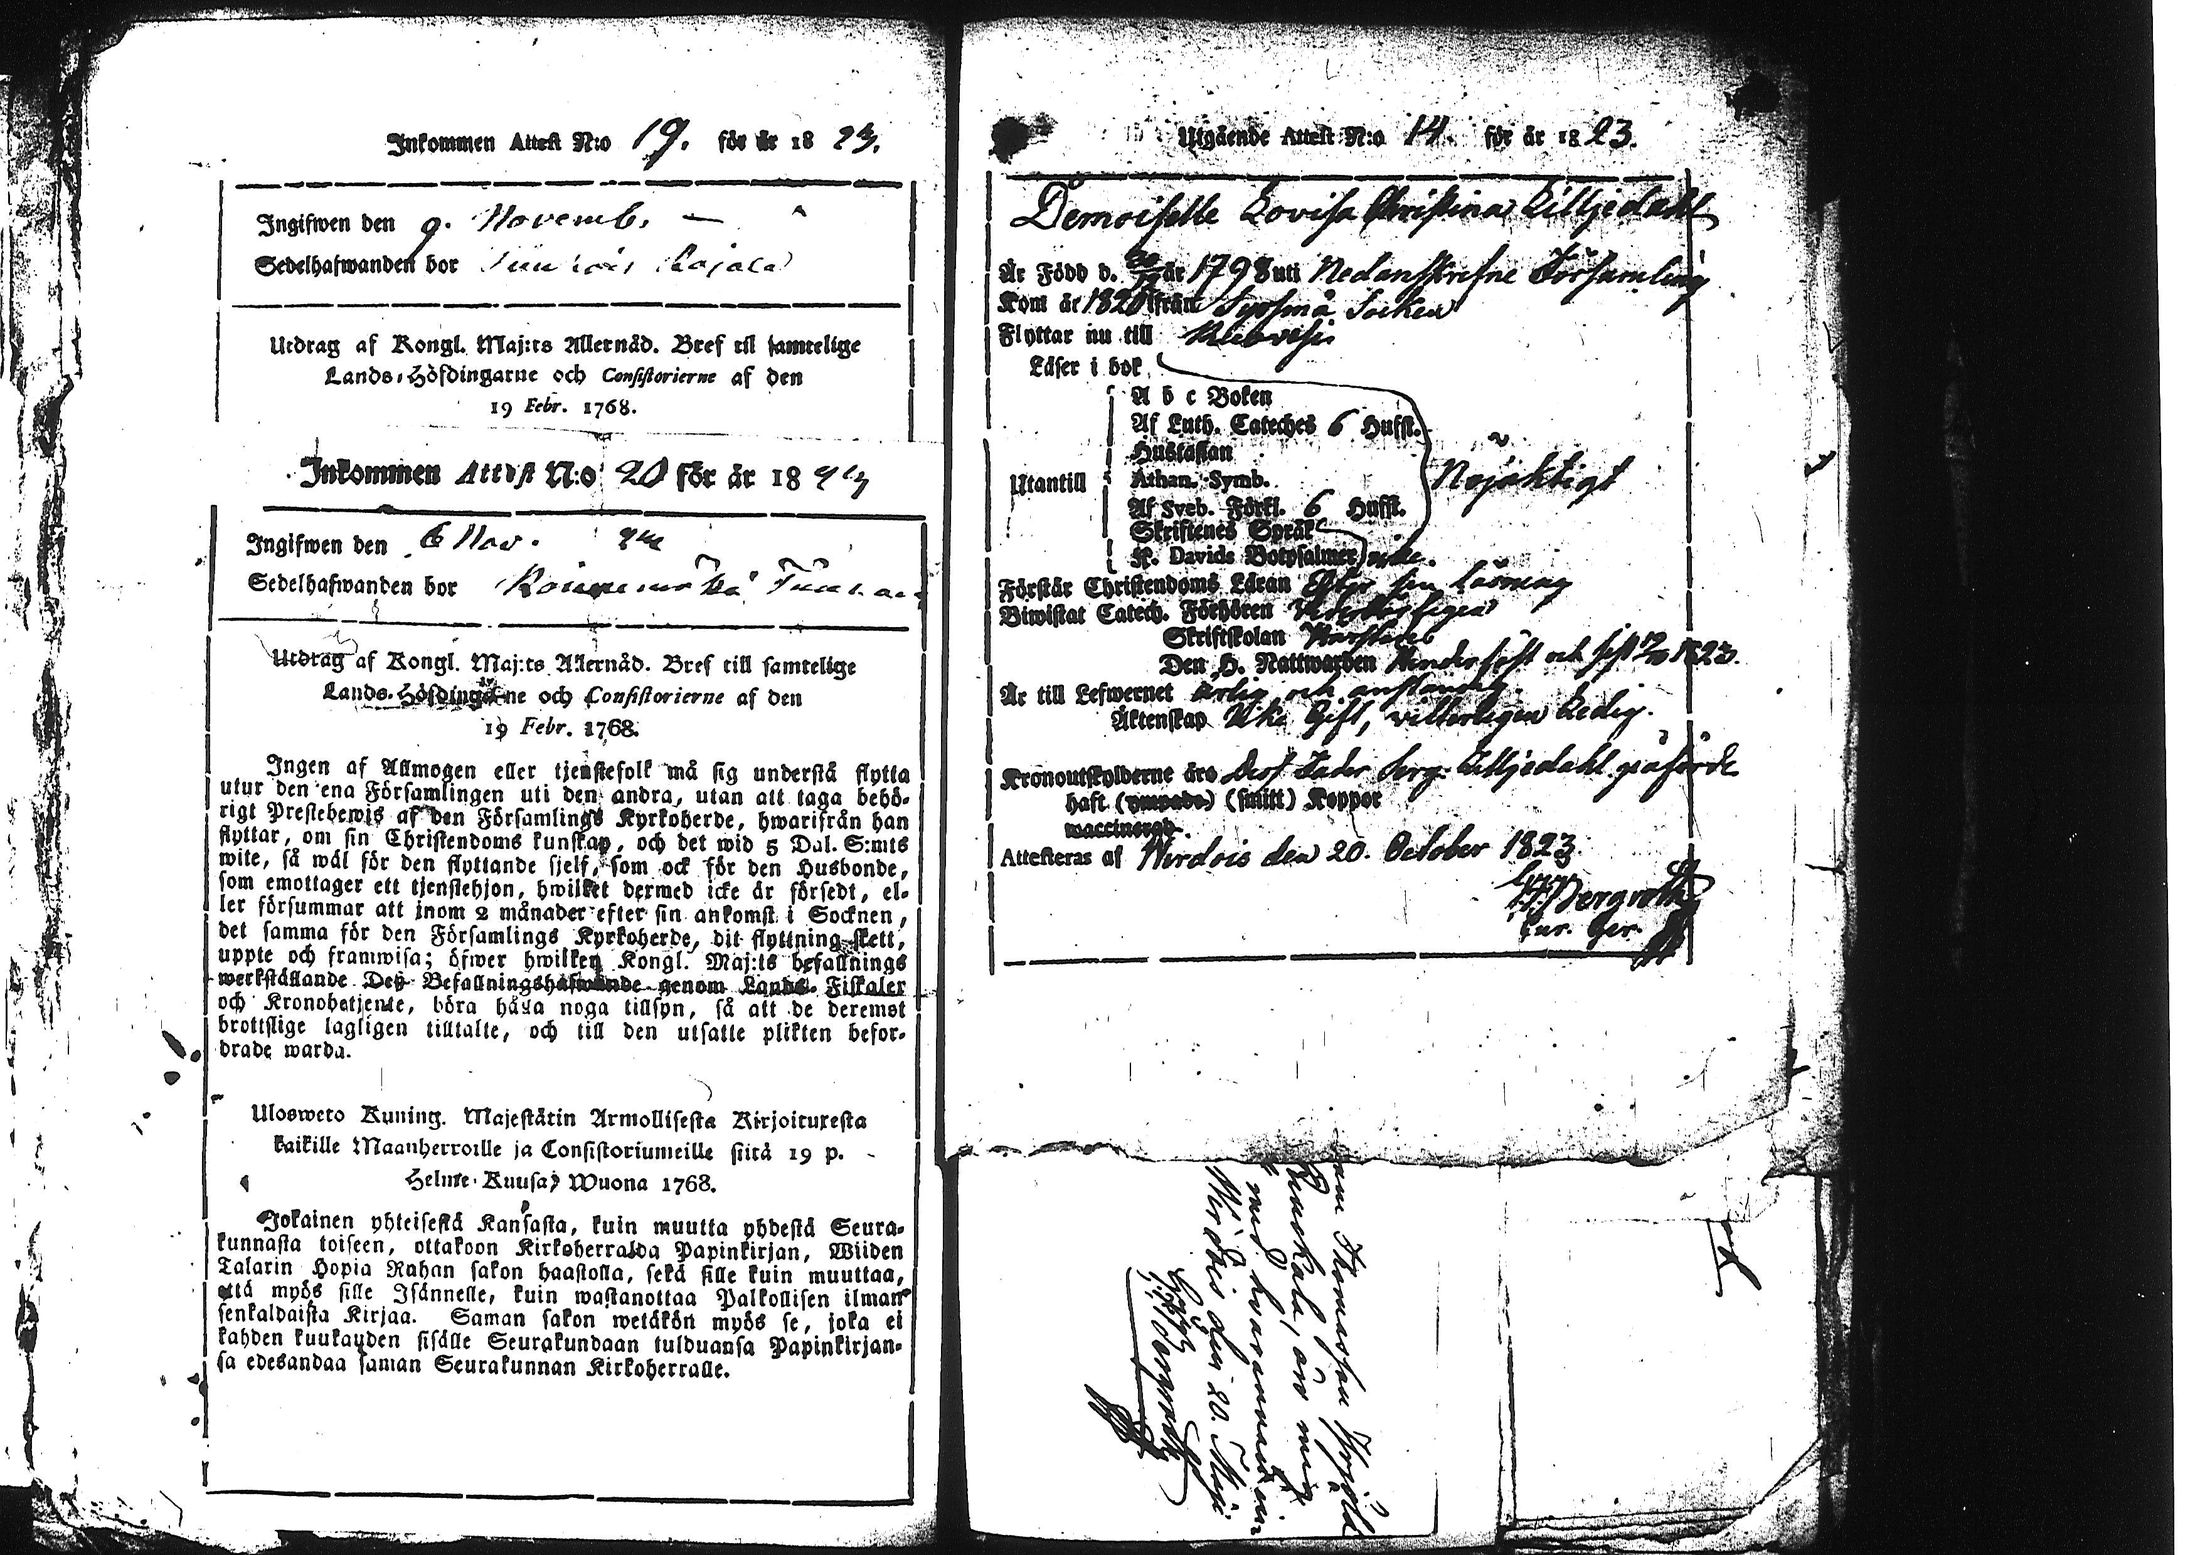 Inkommen Attest N:o 19. för år 1823.
Ingifwen den 9. Novemb.
Sedelhafwanden bor
Utdrag af Kongl. Maj:ts Allernåd. Bref til samtelige
Lands-Höfdingarne och Consistorierne af den
19 Febr. 1768.
Inkommen Attest N:o 20 för år 18
Ingifwen den 6 Nov.
Sedelhafwanden bor
Utdrag af Kongl. Maj:ts Allernåd. Bref till samtelige
Lands-Höfdingarne och Consistorierne af den
19 Febr. 1768.
Ingen af Allmogen eller tjenstefolk må sig understå flytta
utur den ena Församlingen uti den andra, utan att taga behö-
rigt Prestebewis af den Församlings Kyrkoherde, hwarifrån han
flyttar, om sin Christendoms kunskap, och det wid 5 Dal. S:mts
wite, så wäl för den flyttande sjelf, som ock för den Husbonde,
som emottager ett tjenstehjon, hwilket dermed icke är försedt, el-
ler försummar att inom 2 månader efter sin ankomst i Socknen,
det samma för den Församlings Kyrkoherde, dit flyttning skett,
uppte och framwisa; öfwer hwilken Kongl. Maj:ts befallnings
werkställande Deß Befallningshafwande genom Lands-Fiskaler
och Kronobetjente, böra hålla noga tillsyn, så att de deremot
brottslige lagligen tilltalte, och till den utsatte plikten befor-
drade warda.
Ulosweto Kuning. Majestätin Armollisesta Kirjoituxesta
kaikille Maanherroille ja Consistoriumeille siitä 19 p.
Helme-Kuusa, Wuona 1768.
Jokainen yhteisestä Kansasta, kuin muutta yhdestä Seura-
kunnasta toiseen, ottakoon Kirkoherralda Papinkirjan, Wiiden
Talarin Hopia Rahan sakon haastolla, sekä sille kuin muuttaa,
että myös sille Isännelle, kuin wastanottaa Palkollisen ilman
senkaldaista Kirjaa. Saman sakon wetäkön myös se, joka ei
kahden kuukauden sisälle Seurakundaan tulduansa Papinkirjan-
sa edesandaa saman Seurakunnan Kirkoherralle.
Utgående Attest N:o 14. för år 1823.
Demoiselle Lovisa Christina Lilljedahl
År Född d. år 1798 uti Nedanskrefne Församling
Kom år 1820 ifrån Sysmä Socken
Flyttar nu till
Läser i bok
A b c Boken
Af Luth. Cateches 6 Hufst.
Hustaflan
Utantill Athan. Symb. Nöjaktigt
Af Sveb. Förkl. 6 Hufst.
Skriftenes Språk
K. Davids Botpsalmer
Förstår Christendoms Läran Efter sin läsning
Biwistat Catech. Förhören
Skriftskolan
Den H. Nattwarden och sist 1823.
Är till Lefwernet ärlig och anständig.
Äktenskap Icke Gift, vitterligen Ledig.
Kronoutskylderne äro Dess Fader Serg. Lilljedahl påförde
haft (ympade) (smitt) Koppor
waccinerad
Attesteras af Wirdois den 20. October 1823.
Bergroth
Cur. Ger.
Thomasson
med
Wirdois den 20. Maji
Bergroth